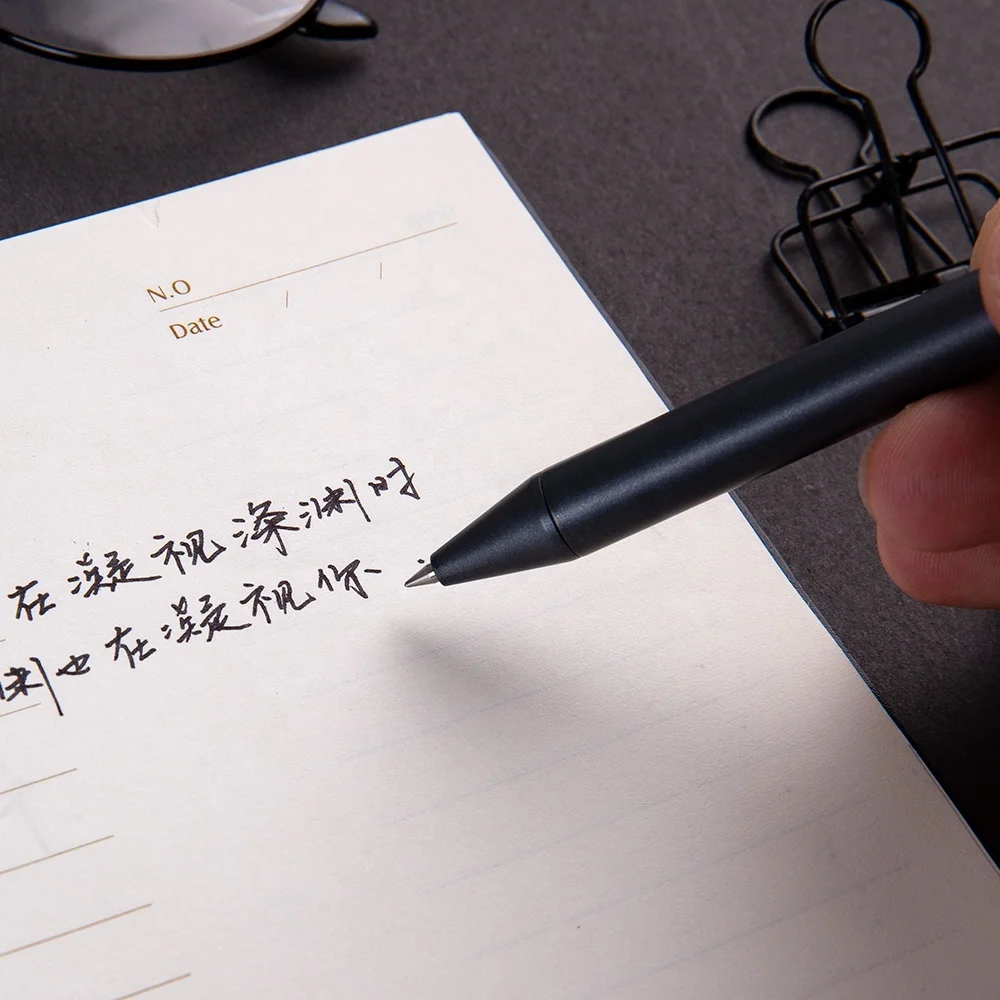 N.O
Date / /
在凝视深渊时
渊也在凝视你